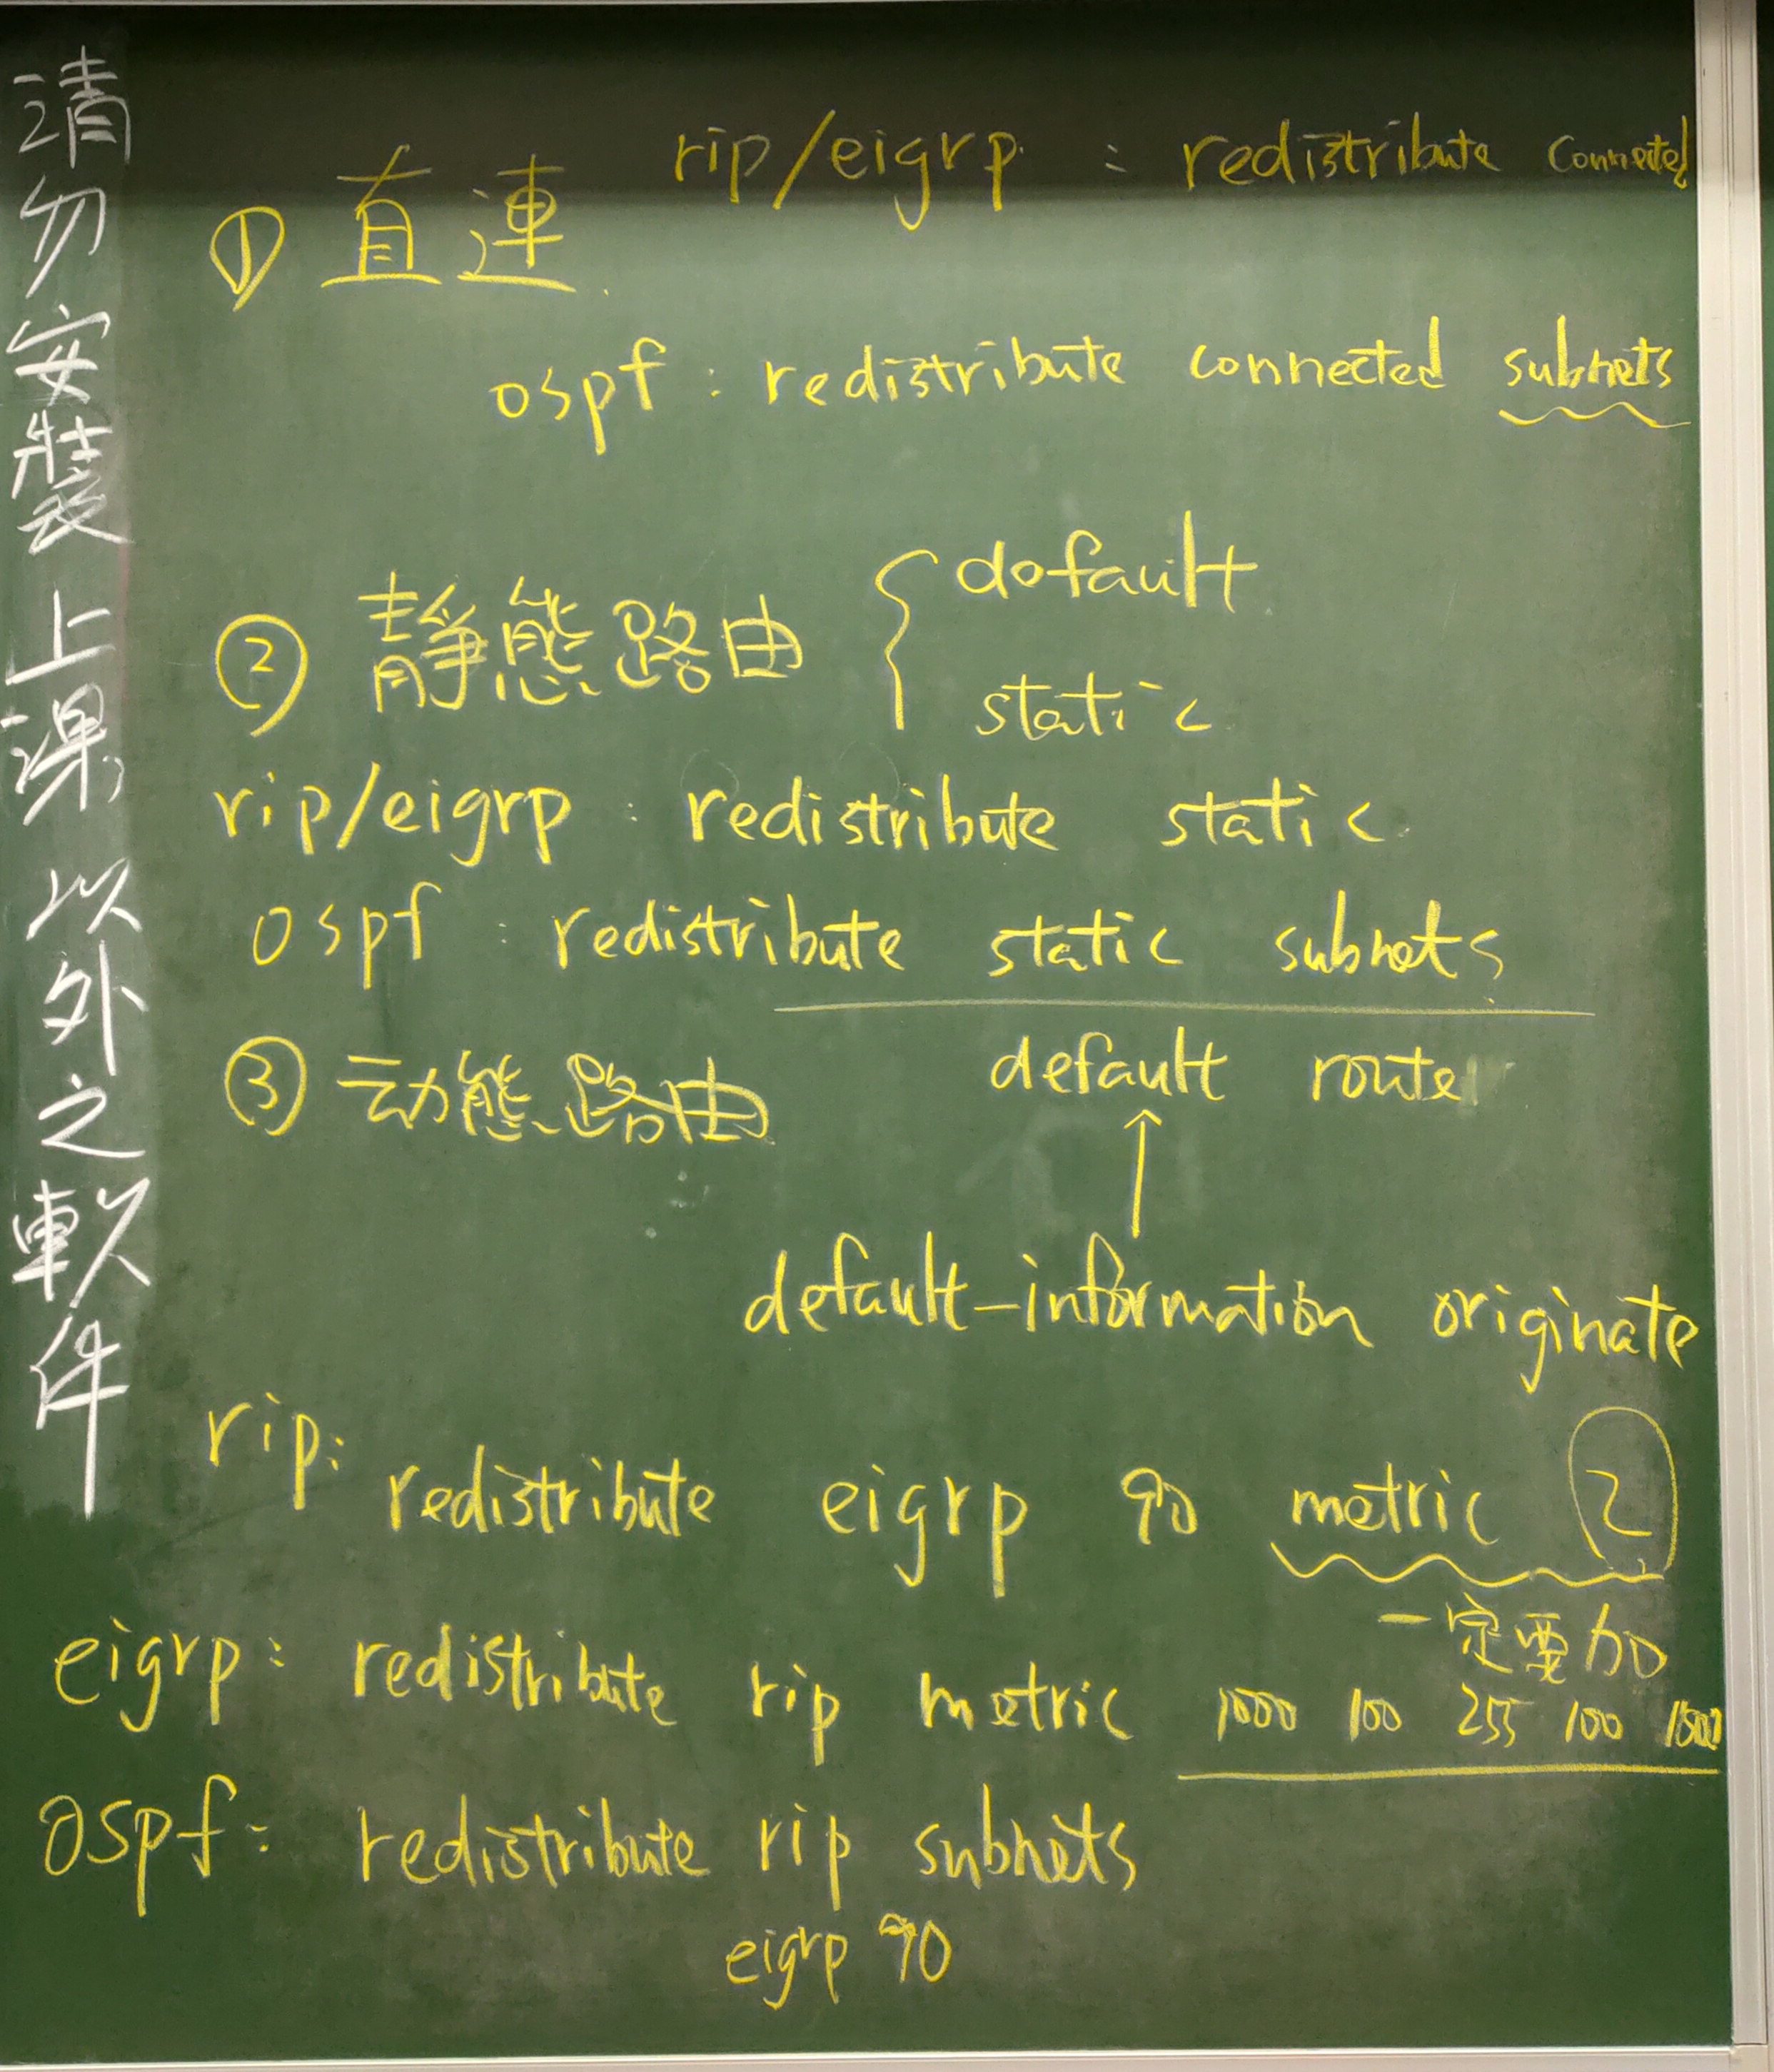 請勿安裝上課以外之軟件
rip/eigrp : redistribute connected
① 直連
ospf : redistribute connected subnets
② 靜態路由 { default
static
rip/eigrp : redistribute static
ospf : redistribute static subnets
③ 动態路由 default route
↑
default-information originate
rip: redistribute eigrp 90 metric 2
一定要加
eigrp: redistribute rip metric 1000 100 255 100 1500
ospf: redistribute rip subnets
eigrp 90